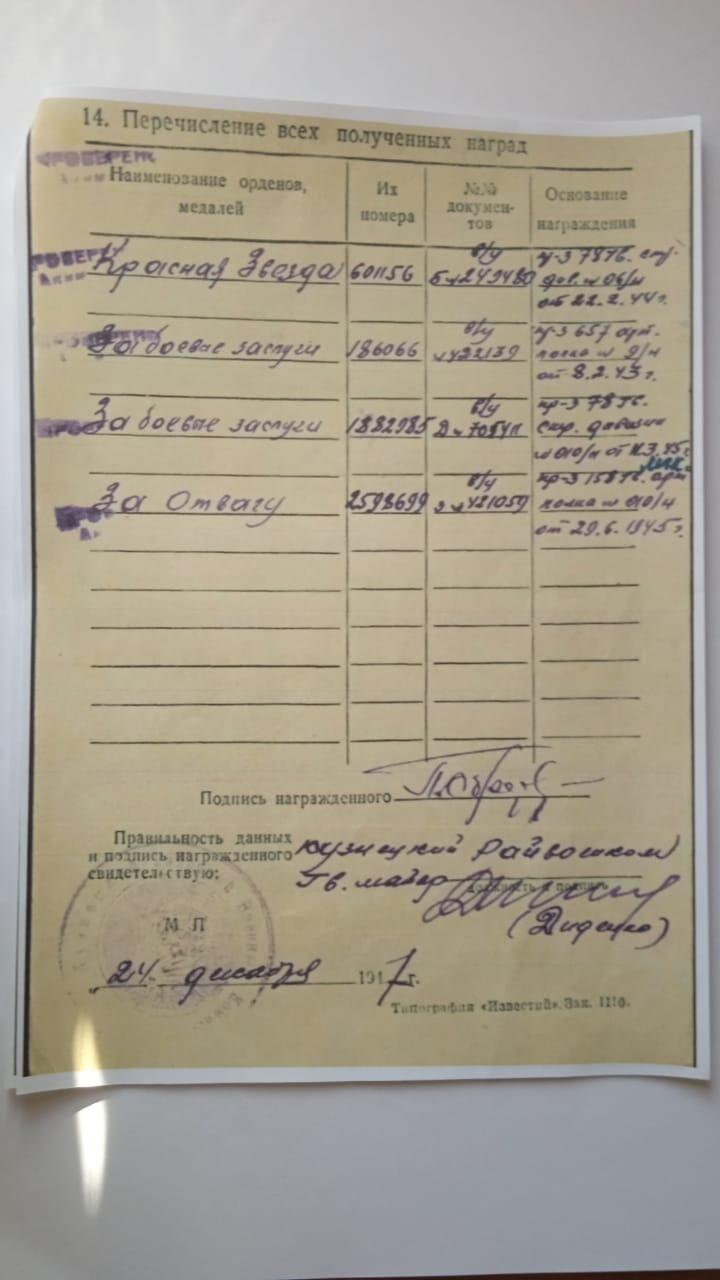 14. Перечисление всех полученных наград
ПРОВЕРЕН
Наименование орденов, медалей
Их номера
№№ документов
Основание награждения
Красная Звезда 601156 в/у Б № 249480 78 гв. стр. див. № 06/н от 22.2.44 г.
За боевые заслуги 186066 в/у № 422139 657 арт. полка № 9/н от 8.2.43 г.
За боевые заслуги 1882985 в/у пр-з 78 гв. стр. дивизии № 010/н от
За Отвагу 2598699 в/у № 421059 пр-з 158 гв. арт полка № 010/н от 29.6.1945 г.
Подпись награжденного
Правильность данных
и подпись награжденного
свидетельствую:
Кузнецкий Райвоенком
Гв. майор
должность и подпись
(Диденко)
М П
„24" декабря 1947 г.
Типография «Известий». Зак. 1110.